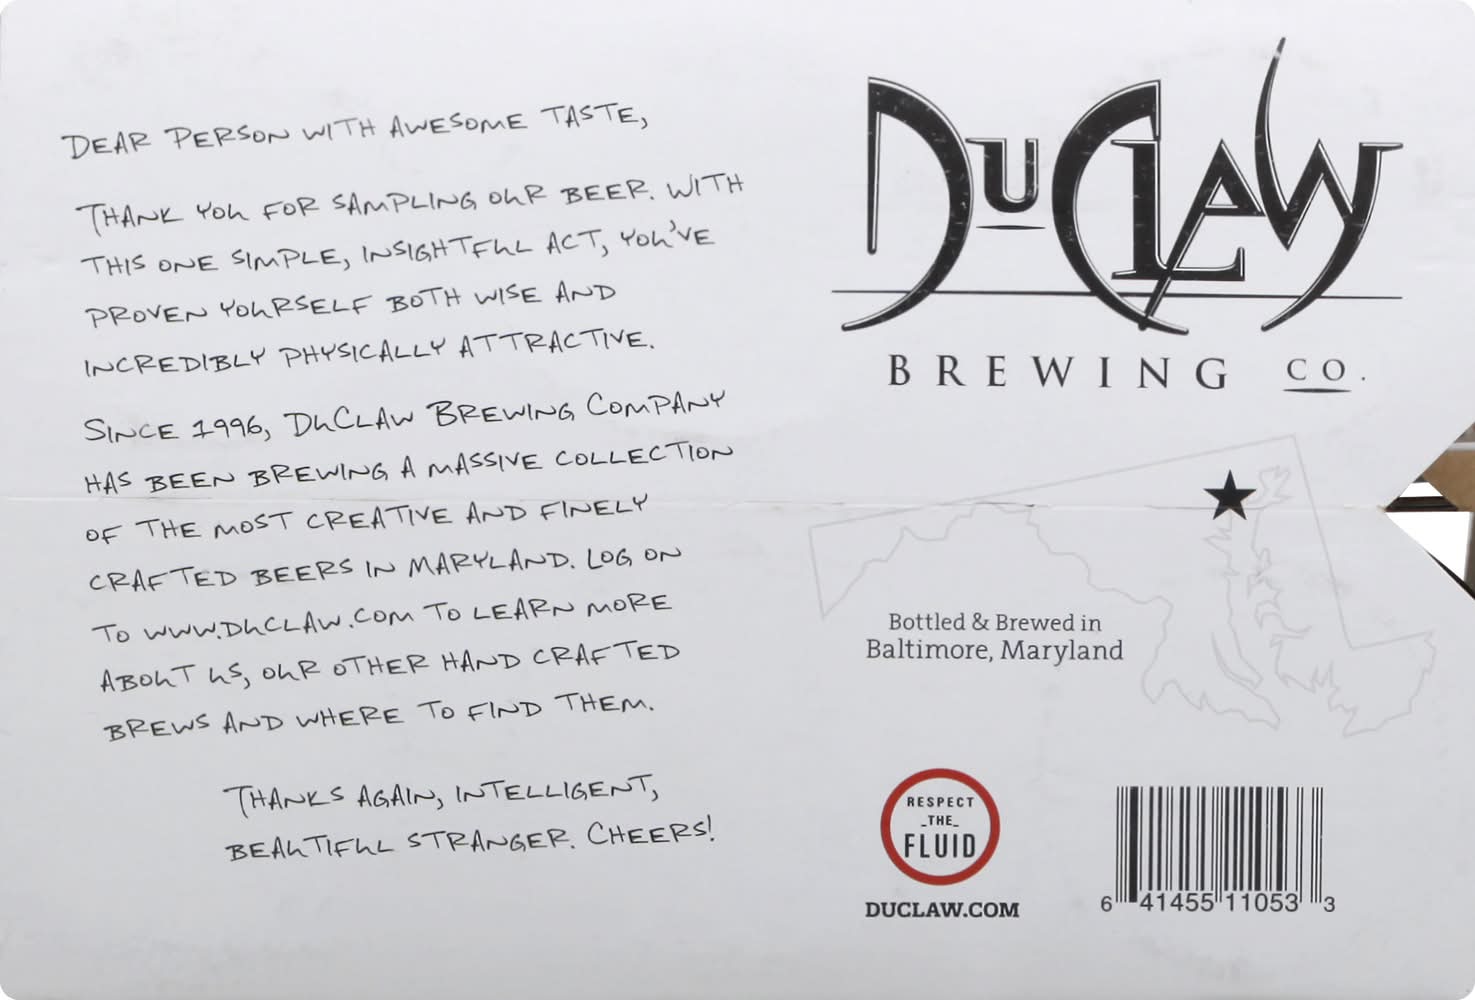 DEAR PERSON WITH AWESOME TASTE,
THANK YOU FOR SAMPLING OUR BEER. WITH
THIS ONE SIMPLE, INSIGHTFUL ACT, YOU'VE
PROVEN YOURSELF BOTH WISE AND
INCREDIBLY PHYSICALLY ATTRACTIVE.
SINCE 1996, DUCLAW BREWING COMPANY
HAS BEEN BREWING A MASSIVE COLLECTION
OF THE MOST CREATIVE AND FINELY
CRAFTED BEERS IN MARYLAND. LOG ON
TO WWW.DUCLAW.COM TO LEARN MORE
ABOUT US, OUR OTHER HAND CRAFTED
BREWS AND WHERE TO FIND THEM.
THANKS AGAIN, INTELLIGENT,
BEAUTIFUL STRANGER. CHEERS!
DUCLAW
BREWING CO.
Bottled & Brewed in
Baltimore, Maryland
RESPECT
THE
FLUID
DUCLAW.COM
6 41455 11053 3